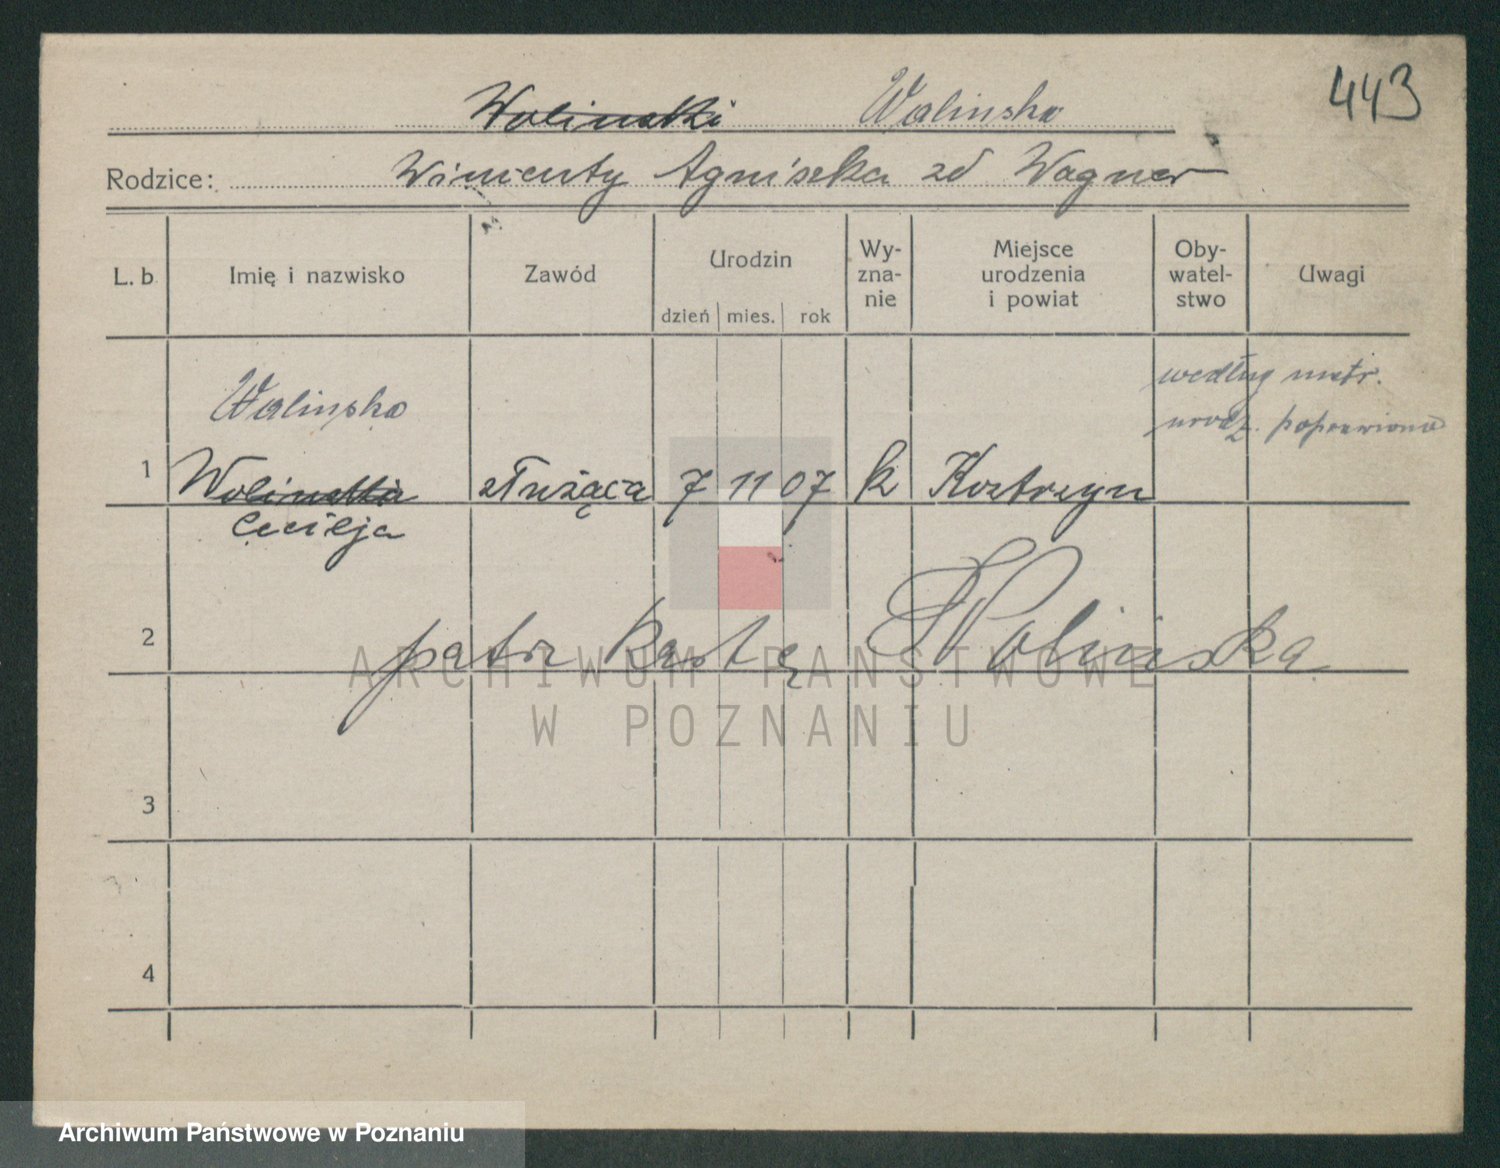 443
Wolinski Walinska
Rodzice: Wincenty Agniszka zd Wagner
L. b. Imię i nazwisko Zawód Urodzin dzień mies. rok Wy-zna-nie Miejsce urodzenia i powiat Oby-watel-stwo Uwagi
według metr.
Walinska urodz. poprawiono
1 Wolinska służąca 7 11 07 k Kostrzyn
Cecilja
2 patrz kartę Wolinska
ARCHIWUM PAŃSTWOWE
W POZNANIU
3
4
Archiwum Państwowe w Poznaniu